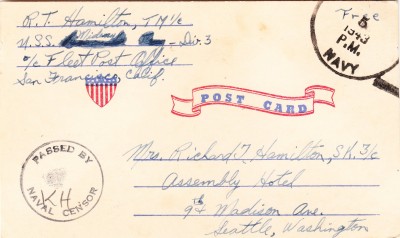 R.T. Hamilton, TM 1/c
U.S.S. Midway - Div. 3
c/o Fleet Post Office
San Francisco, Calif.
Free
5
1943
P.M.
NAVY
POST CARD
PASSED BY
KH
NAVAL CENSOR
Mrs. Richard T. Hamilton, S.K. 3/c
Assembly Hotel
9th & Madison Ave.
Seattle, Washington